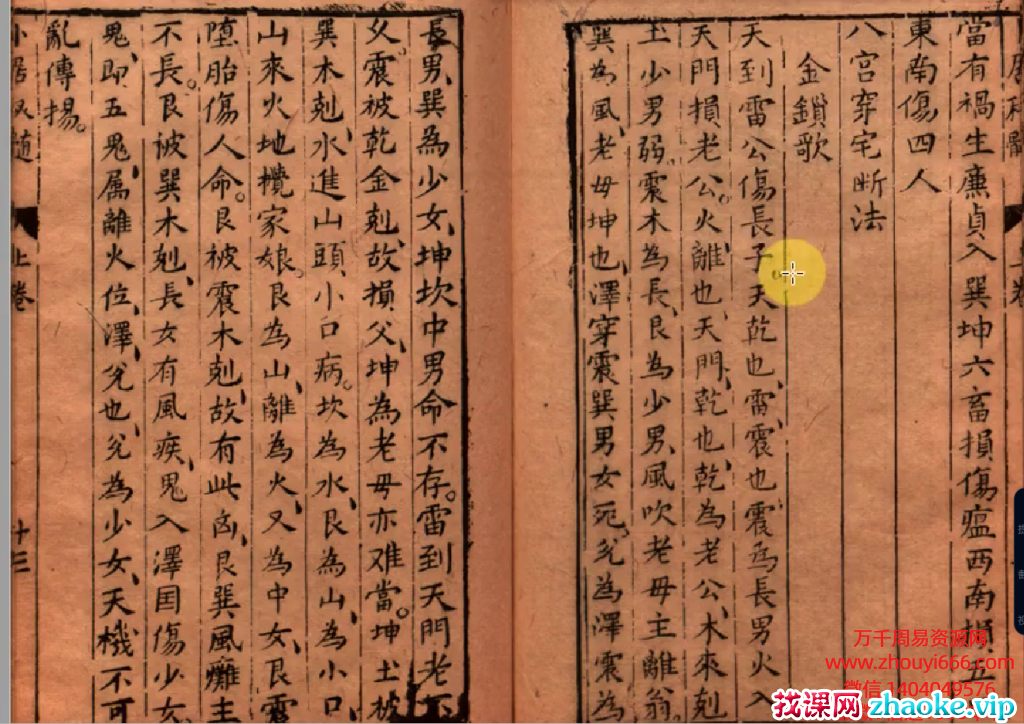 當有禍生廉貞入巽坤六畜損傷瘟西南損五
東南傷四人
八宮穿宅断法
金鎖歌
天到雷公傷長子天乾也雷震也震為長男火入
天門損老公。火離也天門乾也乾為老公木來剋
土少男弱。震木為長艮為少男風吹老母主離翁。
巽為風老母坤也澤穿震巽男女死。兊為澤震為
長男巽為少女坤坎中男命不存。雷到天門老不
父。震被乾金剋故損父坤為老母亦难當。坤土被
巽木剋水進山頭小口病。坎為水艮為山為小口
山來火地攬家娘。艮為山離為火又為中女艮震
堕胎傷人命。艮被震木剋故有此凶艮巽風癱主
不長。艮被巽木剋長女有風疾鬼入澤国傷少女
鬼即五鬼属離火位澤兊也兊為少女天機不可
亂傳揚。
上卷
十三
万千周易资源网
www.zhouyi666.com
微信 1404049576
找课网 zhaoke.vip